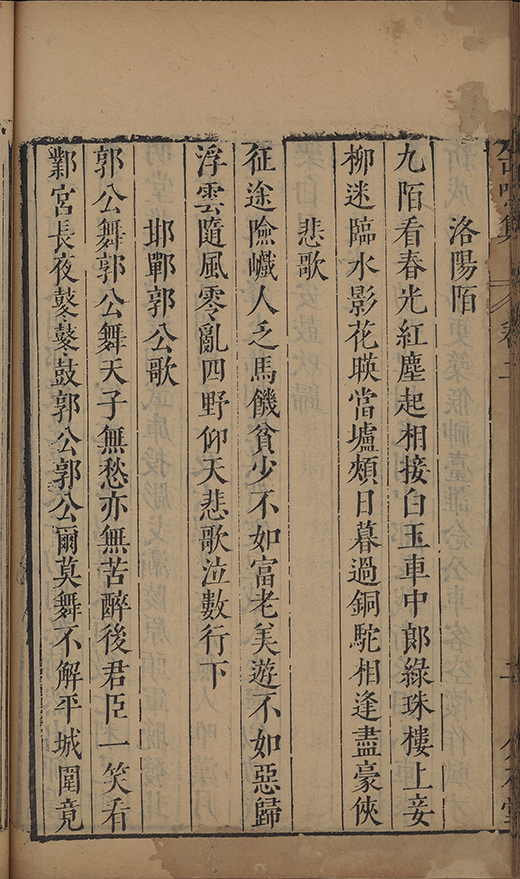 洛陽陌
九陌看春光紅塵起相接白玉車中郎綠珠樓上妾
柳迷臨水影花暎當壚頰日暮過銅駝相逢盡豪俠
悲歌
征途險巇人乏馬饑貧少不如富老美遊不如惡歸
浮雲隨風零亂四野仰天悲歌泣數行下
邯鄲郭公歌
郭公舞郭公舞天子無愁亦無苦醉後君臣一笑看
鄴宮長夜鼕鼕鼓郭公郭公爾莫舞不解平城圍竟